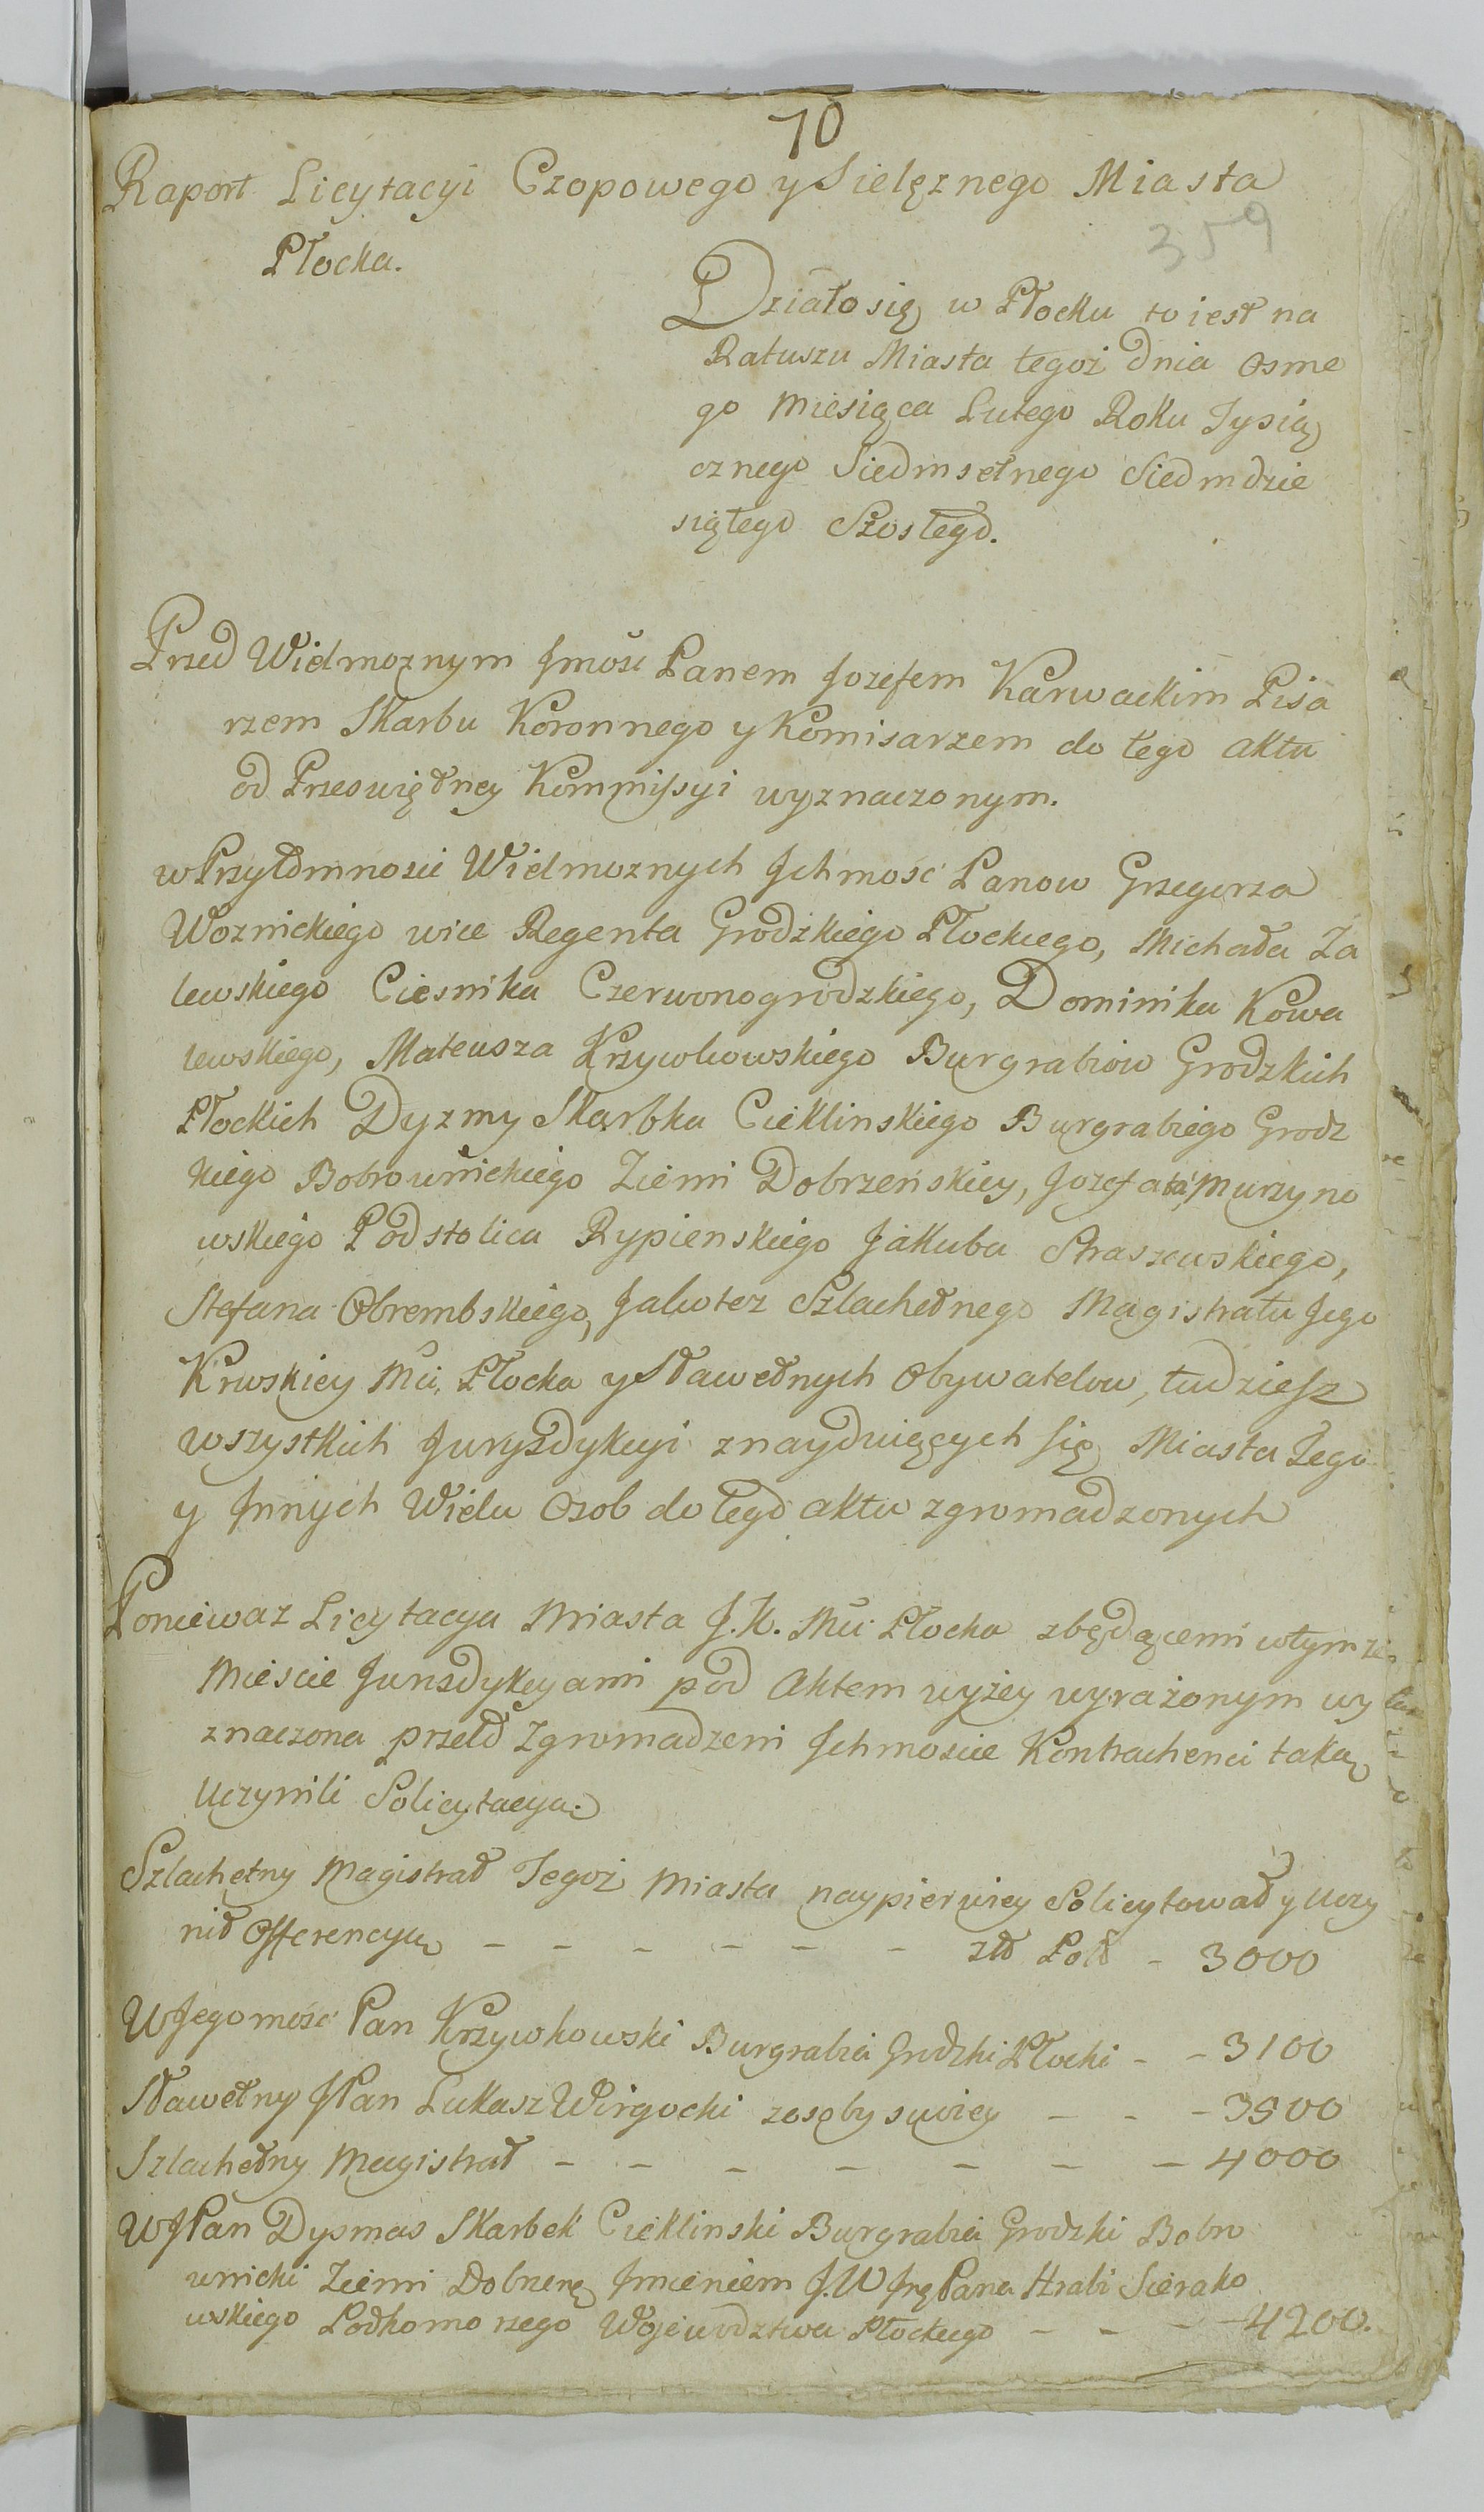 70
Raport Licytacyi Czopowego y Sielęznego Miasta
359
Płocka.
Działo się w Płocku to iest na
Ratuszu Miasta tegoż Dnia osme
go Miesiąca Lutego Roku Tysią
cznego Siedmsetnego Siedmdzie
siątego Szostego.
Przed Wielmoznym Jmość Panem Jozefem Karwackim Pisa
rzem Skarbu Koronnego y Komisarzem do tego aktu
od Przeswiętney Kommissyi wyznaczonym.
w Przytomnosci Wielmoznych Jchmość Panow Grzegorza
Woznickiego wice Regenta Grodzkiego Płockiego, Michała Za
lewskiego Ciesnika Czerwonogrodzkiego, Dominika Kowa
lewskiego, Mateusza Krzywkowskiego Burgrabiow Grodzkich
Płockich Dyzmy Skarbka Cieklinskiego Burgrabiego Grodz
kiego Bobrownickiego Ziemi Dobrzeńskiey, Jozefata Murzyno
wskiego Podstolica Rypienskiego Jakuba Straszewskiego,
Stefana Obrembskiego, Jakotez Szlachetnego Magistratu Jego
Krwskiey Mci, Płocka y Sławetnych Obywatelow, tudziesz
wszystkich Juryzdykcyi znayduięcych się Miasta Tego
y Jnnych Wielu Osob do tego aktu zgromadzonych
Poniewaz Licytacya Miasta J.K. Mci Płocka zbędącemi w tymze
Miescie Jurisdykcyami pod Aktem wyżey wyrażonym wy
znaczona przeto Zgromadzeni Jchmoscie Kontrachenci taką
Uczynili Solicytacyą.
Szlachetny Magistrat Tegoż Miasta naypierwiey Solicytował y Uczy
nił Offerencyą - - - - - - zł Pol - 3000
WJegomość Pan Krzywkowski Burgrabia Grodzki Płocki - - 3100
Sławetny JPan Lukasz Wirgocki zosoby swoiey - - - 3500
Szlachetny Magistrat - - - - - - - 4000
WJPan Dysmas Skarbek Cieklinski Burgrabia Grodzki Bobro
wnicki Ziemi Dobrzenę Jmieniem J.W Jrę Pana Hrabi Sierako
wskiego Podkomorzego Wojewodztwa Płockiego - - - 4200.